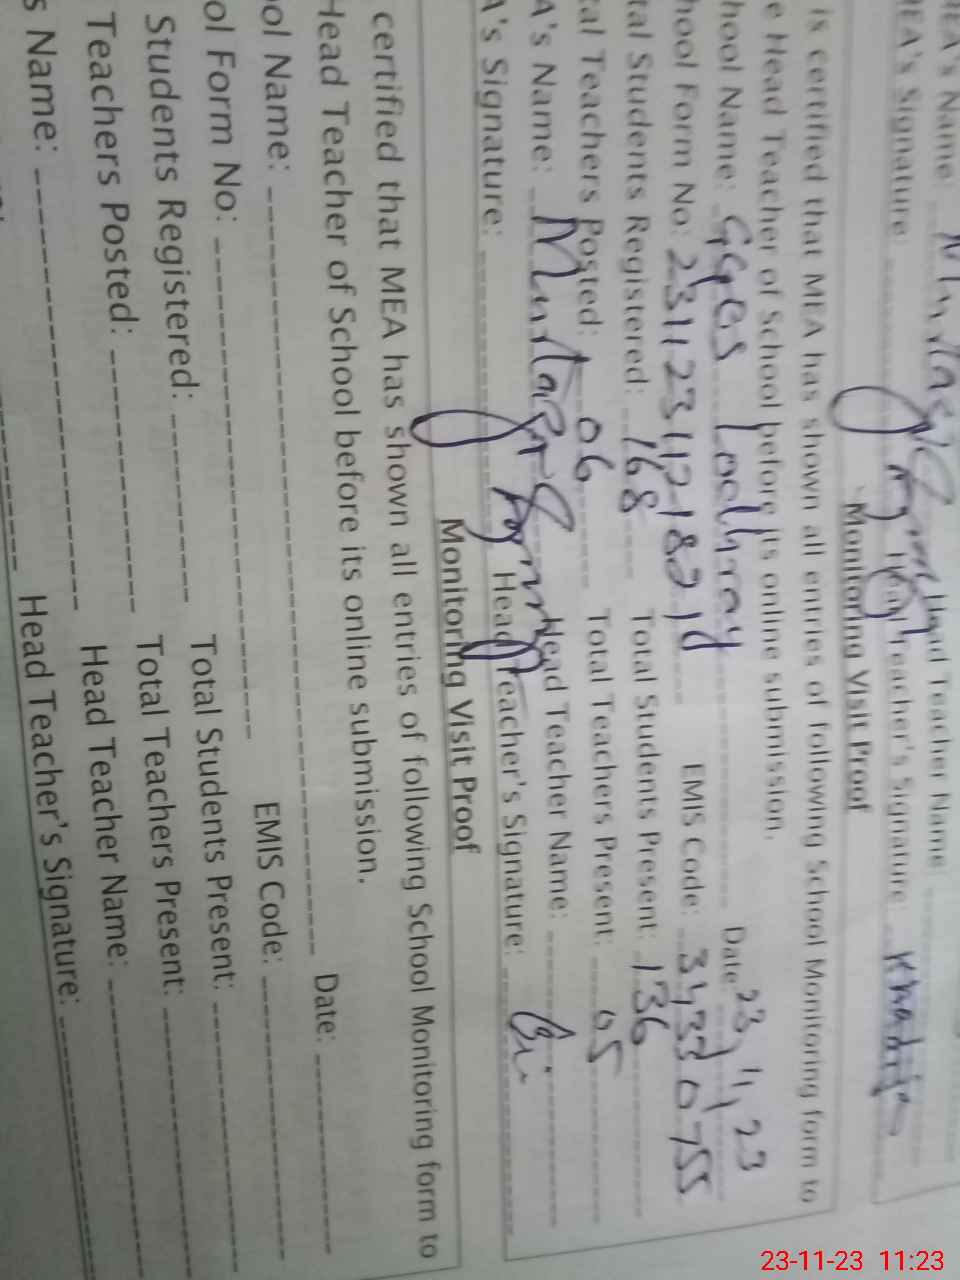 MEA's Name: Mumtaz Head Teacher Name:
MEA's Signature: Head Teacher's Signature: Khadija
Monitoring Visit Proof
is certified that MEA has shown all entries of following School Monitoring form to
e Head Teacher of School before its online submission.
hool Name: GGES Lodhray Date: 23 11 23
hool Form No: EMIS Code: 34330755
tal Students Registered: 168 Total Students Present: 136
tal Teachers Posted: 06 Total Teachers Present: 05
A's Name: Head Teacher Name:
A's Signature: Head Teacher's Signature:
Monitoring Visit Proof
certified that MEA has shown all entries of following School Monitoring form to
Head Teacher of School before its online submission.
ol Name: Date:
ol Form No: EMIS Code:
Students Registered: Total Students Present:
Teachers Posted: Total Teachers Present:
s Name: Head Teacher Name:
Head Teacher's Signature:
23-11-23 11:23